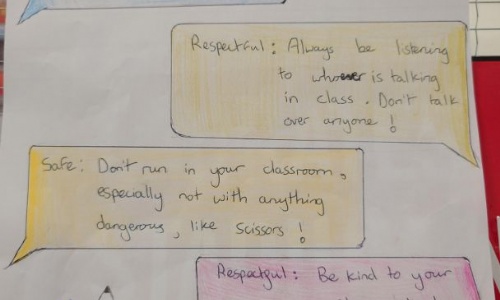 Respectful: Always be listening
to whoever is talking
in class. Don't talk
over anyone!
Safe: Don't run in your classroom,
especially not with anything
dangerous, like scissors!
Respectful: Be kind to your